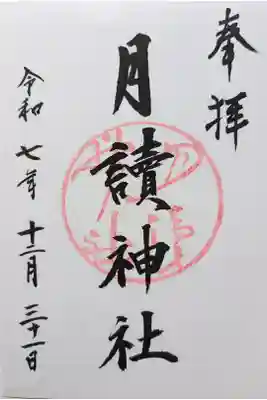 奉拝
月讀神社
令和七年十二月三十一日